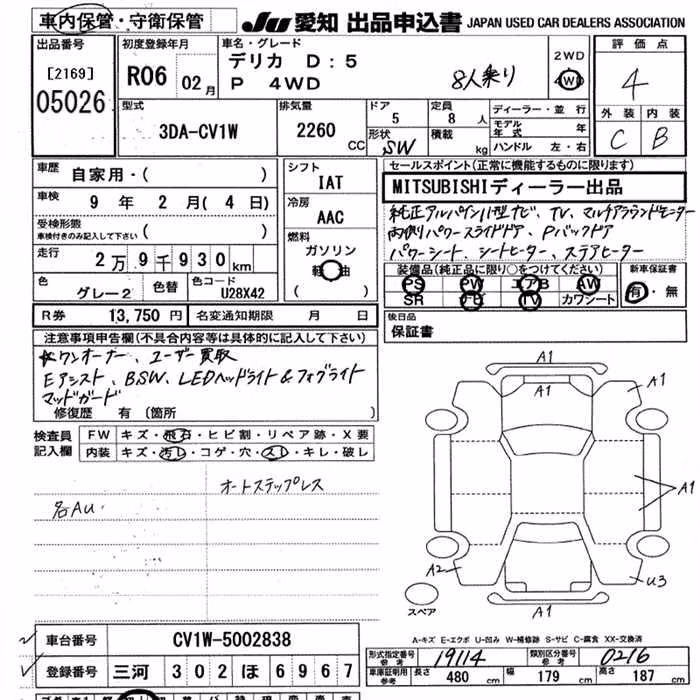 車内保管・守衛保管
JU 愛知 出品申込書 JAPAN USED CAR DEALERS ASSOCIATION
出品番号
[2169]
05026
初度登録年月
R06 02月
車名・グレード
デリカ D:5
P 4WD
8人乗り
2WD
4WD
評価点
4
外装 内装
C B
型式
3DA-CV1W
排気量
2260 CC
ドア
5
形状
SW
定員
8 人
積載
kg
ディーラー・並行
モデル年式 年
ハンドル 左・右
車歴
自家用・( )
車検
9 年 2 月( 4 日)
受検形態
車検付きのみ記入して下さい ( )
走行
2万9千930km
色
グレー2
色替
色コード
U28X42
シフト
IAT
冷房
AAC
燃料
ガソリン
軽油
( )
セールスポイント(正常に機能するものに限ります)
MITSUBISHIディーラー出品
純正アルパイン11型ナビ、TV、マルチアラウンドモニター
両側パワースライドドア、Pバックドア
パワーシート、シートヒーター、ステアヒーター
装備品(純正品に限り○をつけてください)
PS PW エアB AW
SR ナビ TV カワシート
新車保証書
有・無
R券 13,750 円
名変通知期限 月 日
後日品
保証書
注意事項申告欄(不具合内容等は具体的に記入して下さい)
ワンオーナー、ユーザー買取
Eアシスト、BSW、LEDヘッドライト&フォグライト
マッドガード
修復歴 有 (箇所 )
検査員記入欄
FW キズ・飛石・ヒビ割・リペア跡・X要
内装 キズ・汚レ・コゲ・穴・スレ・キレ・破レ
オートステップレス
各AU
A1
A1
A1
A1
A2
U3
A1
スペア
A-キズ E-エクボ U-凹み W-補修跡 S-サビ C-腐食 XX-交換済
車台番号 CV1W-5002838
登録番号 三河 302 ほ 6967
形式指定番号 参考 19114
類別区分番号 参考 0216
車庫証明用 参考 長さ 480 cm 幅 179 cm 高さ 187 cm